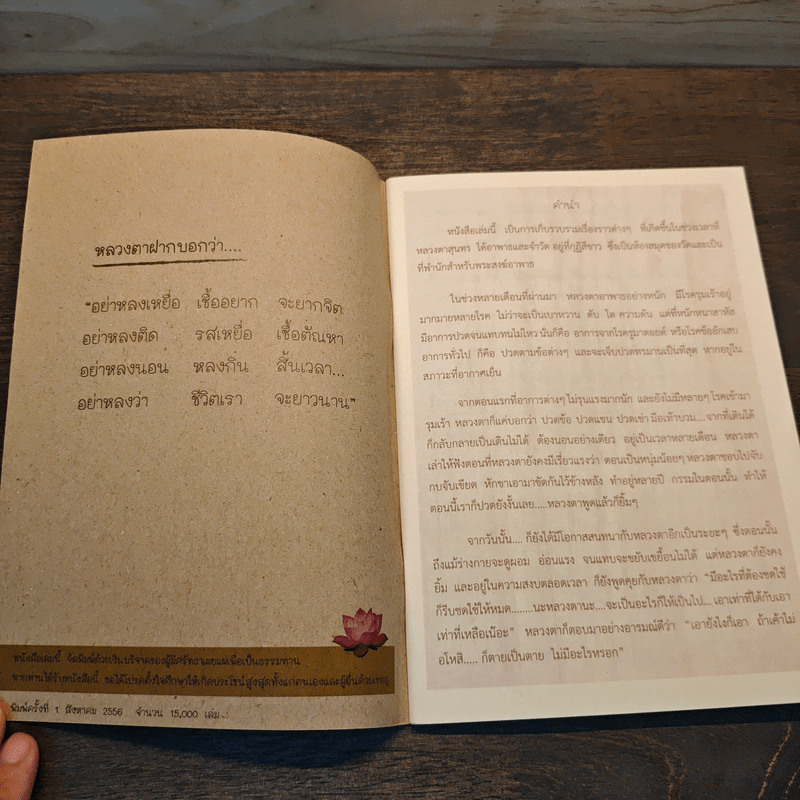 หลวงตาฝากบอกว่า....
"อย่าหลงเหยื่อ เชื้ออยาก จะยากจิต
อย่าหลงติด รสเหยื่อ เชื้อตัณหา
อย่าหลงนอน หลงกิน สิ้นเวลา...
อย่าหลงว่า ชีวิตเรา จะยาวนาน"
หนังสือเล่มนี้ จัดพิมพ์ด้วยเงินบริจาคของผู้มีศรัทธาเผยแผ่เพื่อเป็นธรรมทาน
หากท่านได้รับหนังสือนี้ ขอได้โปรดตั้งใจศึกษาให้เกิดประโยชน์สูงสุดทั้งแก่ตนเองและผู้อื่นด้วยเทอญ
พิมพ์ครั้งที่ 1 สิงหาคม 2556 จำนวน 15,000 เล่ม
คำนำ
หนังสือเล่มนี้ เป็นการเก็บรวบรวมเรื่องราวต่างๆ ที่เกิดขึ้นในช่วงเวลาที่
หลวงตาสุนทร ได้อาพาธและจำวัด อยู่ที่กุฏิสีขาว ซึ่งเป็นห้องสมุดของวัดและเป็น
ที่พำนักสำหรับพระสงฆ์อาพาธ
ในช่วงหลายเดือนที่ผ่านมา หลวงตาอาพาธอย่างหนัก มีโรครุมเร้าอยู่
มากมายหลายโรค ไม่ว่าจะเป็นเบาหวาน ตับ ไต ความดัน แต่ที่หนักหนาสาหัส
มีอาการปวดจนแทบทนไม่ไหว นั่นก็คือ อาการจากโรครูมาตอยด์ หรือโรคข้ออักเสบ
อาการทั่วไป ก็คือ ปวดตามข้อต่างๆ และจะเจ็บปวดทรมานเป็นที่สุด หากอยู่ใน
สภาวะที่อากาศเย็น
จากตอนแรกที่อาการต่างๆ ไม่รุนแรงมากนัก และยังไม่มีหลายๆ โรคเข้ามา
รุมเร้า หลวงตาก็แค่บอกว่า ปวดข้อ ปวดแขน ปวดเข่า มือเท้าบวม....จากที่เดินได้
ก็กลับกลายเป็นเดินไม่ได้ ต้องนอนอย่างเดียว อยู่เป็นเวลาหลายเดือน หลวงตา
เล่าให้ฟังตอนที่หลวงตายังคงมีเรี่ยวแรงว่า ตอนเป็นหนุ่มน้อยๆ หลวงตาชอบไปจับ
กบจับเขียด หักขาเอามาขัดกันไว้ข้างหลัง ทำอยู่หลายปี กรรมในตอนนั้น ทำให้
ตอนนี้เราก็ปวดยังงั้นเลย.....หลวงตาพูดแล้วก็ยิ้มๆ
จากวันนั้น.... ก็ยังได้มีโอกาสสนทนากับหลวงตาอีกเป็นระยะๆ ซึ่งตอนนั้น
ถึงแม้ร่างกายจะดูผอม อ่อนแรง จนแทบจะขยับเขยื้อนไม่ได้ แต่หลวงตาก็ยังคง
ยิ้ม และอยู่ในความสงบตลอดเวลา ก็ยังพูดคุยกับหลวงตาว่า "มีอะไรที่ต้องชดใช้
ก็รีบชดใช้ให้หมด........นะหลวงตานะ....จะเป็นอะไรก็ให้เป็นไป... เอาเท่าที่ได้กับเอา
เท่าที่เหลือเน๊อะ" หลวงตาก็ตอบมาอย่างอารมณ์ดีว่า "เอายังไงก็เอา ถ้าเค้าไม่
อโหสิ..... ก็ตายเป็นตาย ไม่มีอะไรหรอก"